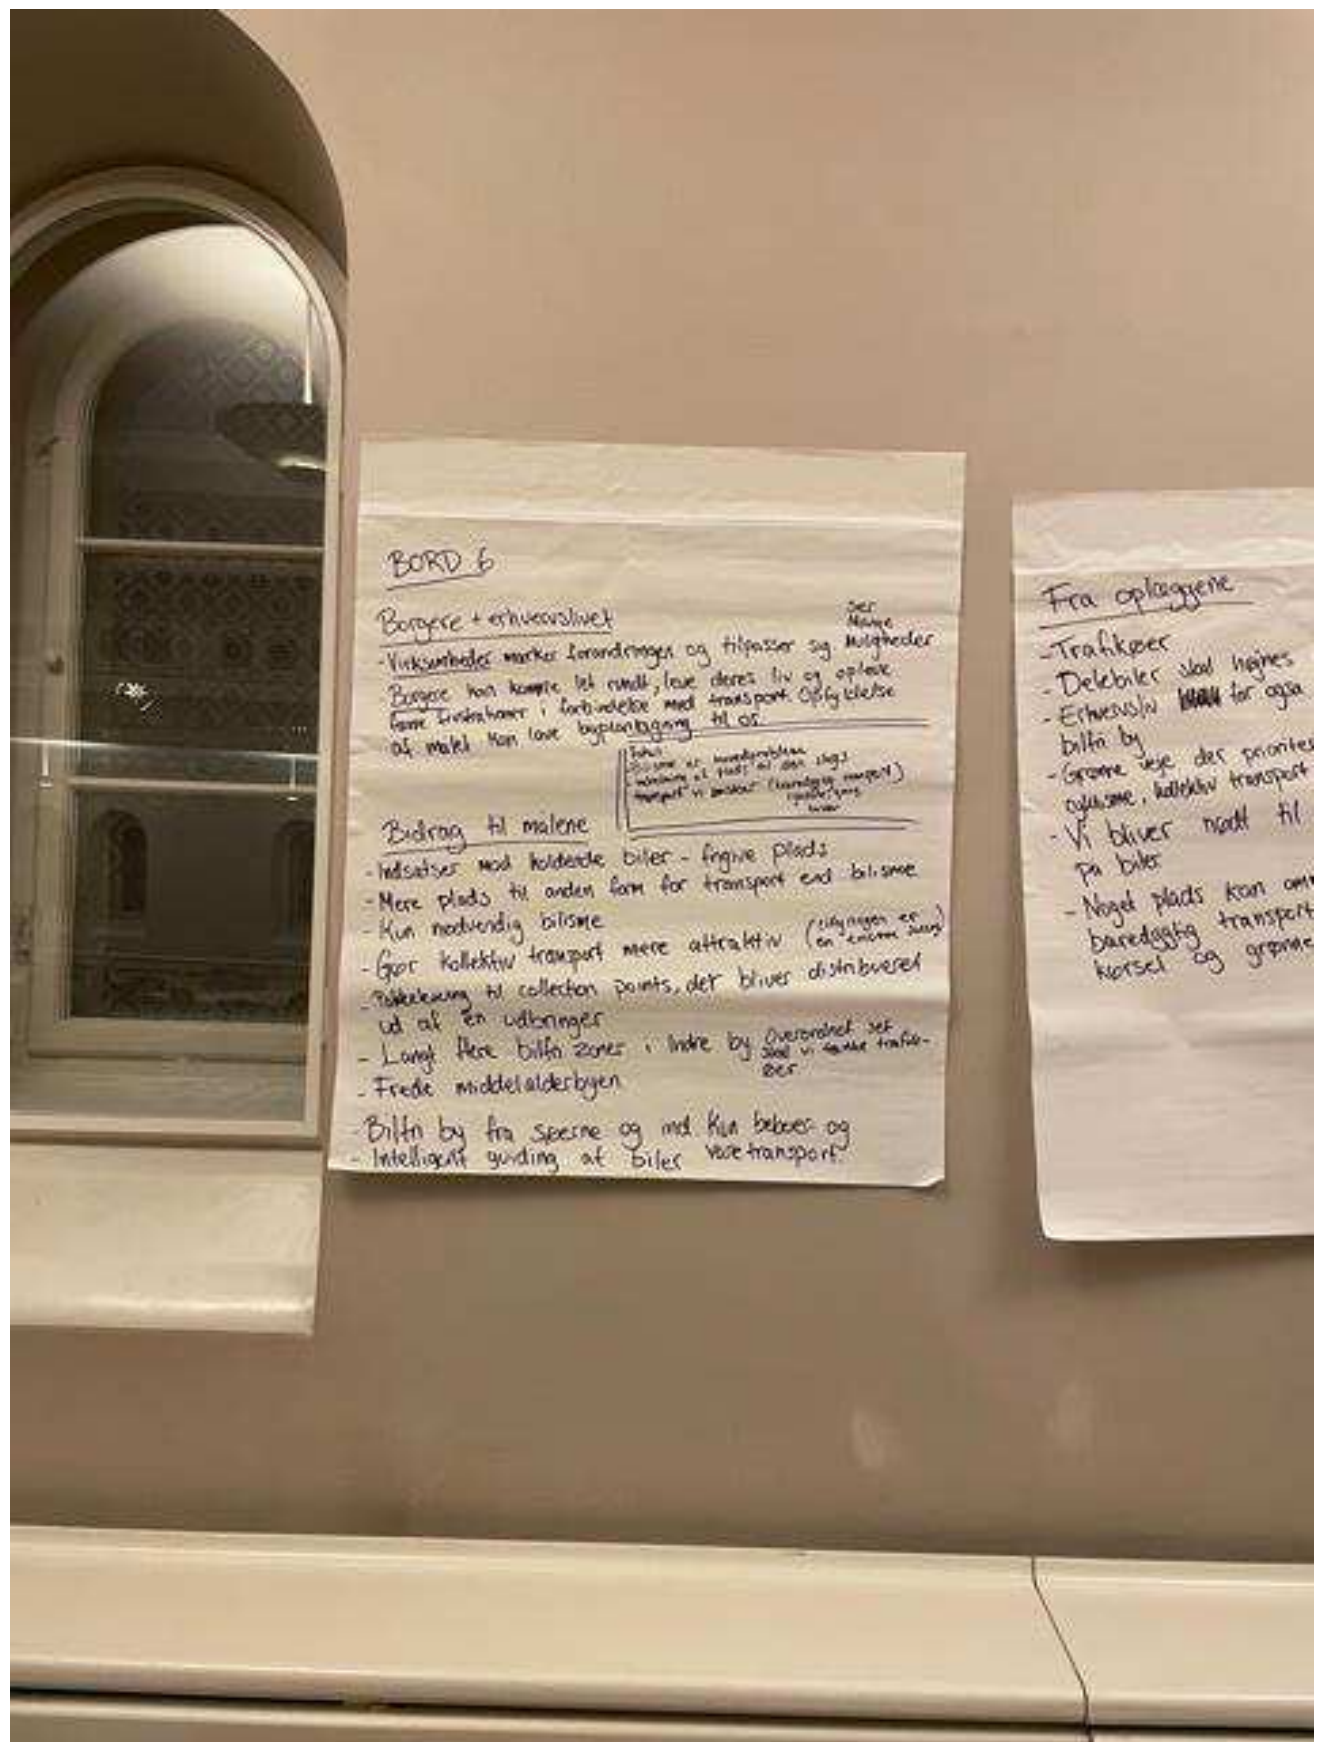 BORD 6
Borgere + erhvervslivet
- Virksomheder mærker forandringen og tilpasser sig
ser
Mange
Muligheder
Borgere kan komme let rundt, leve deres liv og opleve
færre frustrationer i forbindelse med transport. Opfyldelse
af målet kan lave byplanlægning til os
transport vi ønsker
Bidrag til målene
- Indsatser mod holdende biler - frigive plads
- Mere plads til anden form for transport end bilisme
- Kun nødvendig bilisme
- Gør kollektiv transport mere attraktiv (cityringen er
en enorm succes)
- Pakkelevering til collection points, der bliver distribueret
ud af én udbringer
- Langt flere bilfri zoner i Indre by
Overordnet set
skal vi tænke trafik-
øer
- Frede middelalderbyen
Bilfri by fra søerne og ind Kun beboer og
varetransport.
- Intelligent guiding af biler
Fra oplæggene
- Trafikøer
- Delebiler skal højnes
- Erhvervsliv for også
bilfri by
- Grønne veje der
cyklisme, kollektiv transport
- Vi bliver nødt til
på biler
- Noget plads kan
bæredygtig transport
kørsel og grønne